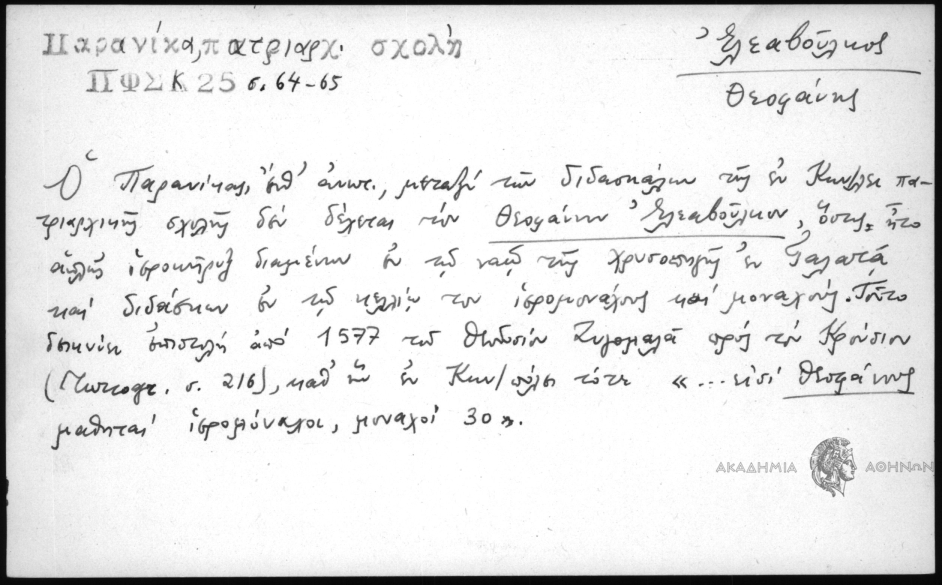 Παρανίκα, πατριαρχ. σχολή
ΠΦΣΚ 25 σ. 64-65
Ἐλεαβοῦλκος
Θεοφάνης
Ὁ Παρανίκας, ἔνθ' ἀνωτ., μεταξύ τῶν διδασκάλων τῆς ἐν Κων/λει πα-
τριαρχικῆς σχολῆς δέν δέχεται τόν Θεοφάνην Ἐλεαβοῦλκον, ὅστις ἦτο
ἁπλῶς ἱεροκῆρυξ διαμένων ἐν τῷ ναῷ τῆς χρυσοπηγῆς ἐν Γαλατᾷ
καί διδάσκων ἐν τῷ κελλίῳ του ἱερομονάχους καί μοναχούς. Τοῦτο
δεικνύει ἐπιστολή ἀπό 1577 τοῦ Θεοδοσίου Ζυγομαλᾶ πρός τόν Κρούσιον
(Turcogr. σ. 216), καθ' ἥν ἐν Κων/πόλει τότε «...εἰσί Θεοφάνους
μαθηταί ἱερομόναχοι, μοναχοί 30».
ΑΚΑΔΗΜΙΑ ΑΘΗΝΩΝ